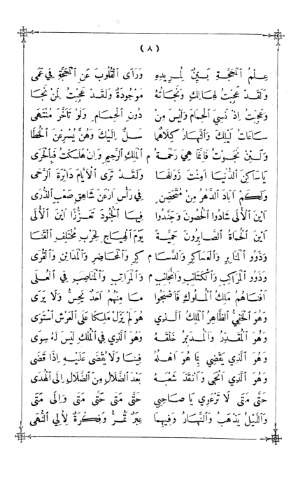 ( ٨ )
عِلْمُ ٱلْمَحَجَّةِ بَيِّنٌ لِمُرِيدِهِ وَأَرَى ٱلْقُلُوبَ عَنِ ٱلْمَحَجَّةِ فِي عَمَى
وَلَقَدْ عَجِبْتُ لِهَالِكٍ وَنَجَاتُهُ مَوْجُودَةٌ وَلَقَدْ عَجِبْتُ لِمَنْ نَجَا
وَعَجِبْتُ إِذْ نَسِيَ ٱلْحِمَامَ وَلَيْسَ مِنْ دُونِ ٱلْحِمَامِ وَلَوْ تَأَخَّرَ مُنْتَهَى
سَاعَاتُ لَيْلِكَ وَٱلنَّهَارِ كِلَاهُمَا رُسُلٌ إِلَيْكَ وَهُنَّ يُسْرِعْنَ ٱلْخُطَا
وَلَئِنْ نَجَوْتَ فَإِنَّمَا هِيَ رَحْمَةُ م ٱلْمَلِكِ ٱلرَّحِيمِ وَإِنْ هَلَكْتَ فَبِٱلْحَرَى
يَا سَاكِنَ ٱلدُّنْيَا أَمِنْتَ زَوَالَهَا وَلَقَدْ تَرَى ٱلْأَيَّامَ دَائِرَةَ ٱلرَّحَى
وَلَكَمْ أَبَادَ ٱلدَّهْرُ مِنْ مُتَحَصِّنٍ فِي رَأْسِ أَرْعَنَ شَاهِقٍ صَعْبِ ٱلذُّرَى
أَيْنَ ٱلْأُلَى شَادُوا ٱلْحُصُونَ وَجَنَّدُوا فِيهَا ٱلْجُنُودَ تَعَزُّزًا أَيْنَ ٱلْأُلَى
أَيْنَ ٱلْحُمَاةُ ٱلصَّابِرُونَ حَمِيَّةً يَوْمَ ٱلْهِيَاجِ لِحَرِّ مُخْتَلِفِ ٱلْقَنَا
وَذَوُو ٱلْمَنَابِرِ وَٱلْعَسَاكِرِ وَٱلدَّسَا م كِرِ وَٱلْمَحَاضِرِ وَٱلْمَدَائِنِ وَٱلْقُرَى
وَذَوُو ٱلْمَوَاكِبِ وَٱلْكَتَائِبِ وَٱلنَّجَائِبِ م وَٱلْمَرَاتِبِ وَٱلْمَنَاصِبِ فِي ٱلْعُلَى
أَفْنَاهُمُ مَلِكُ ٱلْمُلُوكِ فَأَصْبَحُوا مَا مِنْهُمُ أَحَدٌ يُحَسُّ وَلَا يُرَى
وَهُوَ ٱلْخَفِيُّ ٱلظَّاهِرُ ٱلْمَلِكُ ٱلَّذِي هُوَ لَمْ يَزَلْ مَلِكًا عَلَى ٱلْعَرْشِ ٱسْتَوَى
وَهُوَ ٱلْمُقَدِّرُ وَٱلْمُدَبِّرُ خَلْقَهُ وَهُوَ ٱلَّذِي فِي ٱلْمُلْكِ لَيْسَ لَهُ سِوَى
وَهُوَ ٱلَّذِي يَقْضِي بِمَا هُوَ أَهْلُهُ فِينَا وَلَا يُقْضَى عَلَيْهِ إِذَا قَضَى
وَهُوَ ٱلَّذِي أَنْجَى وَأَنْقَذَ شَعْبَهُ بَعْدَ ٱلضَّلَالِ مِنَ ٱلضَّلَالِ إِلَى ٱلْهُدَى
حَتَّى مَتَى لَا تَرْعَوِي يَا صَاحِبِي حَتَّى مَتَى حَتَّى مَتَى وَإِلَى مَتَى
وَٱللَّيْلُ يَذْهَبُ وَٱلنَّهَارُ وَفِيهِمَا عِبَرٌ تَمُرُّ وَفِكْرَةٌ لِأُولِي ٱلنُّهَى